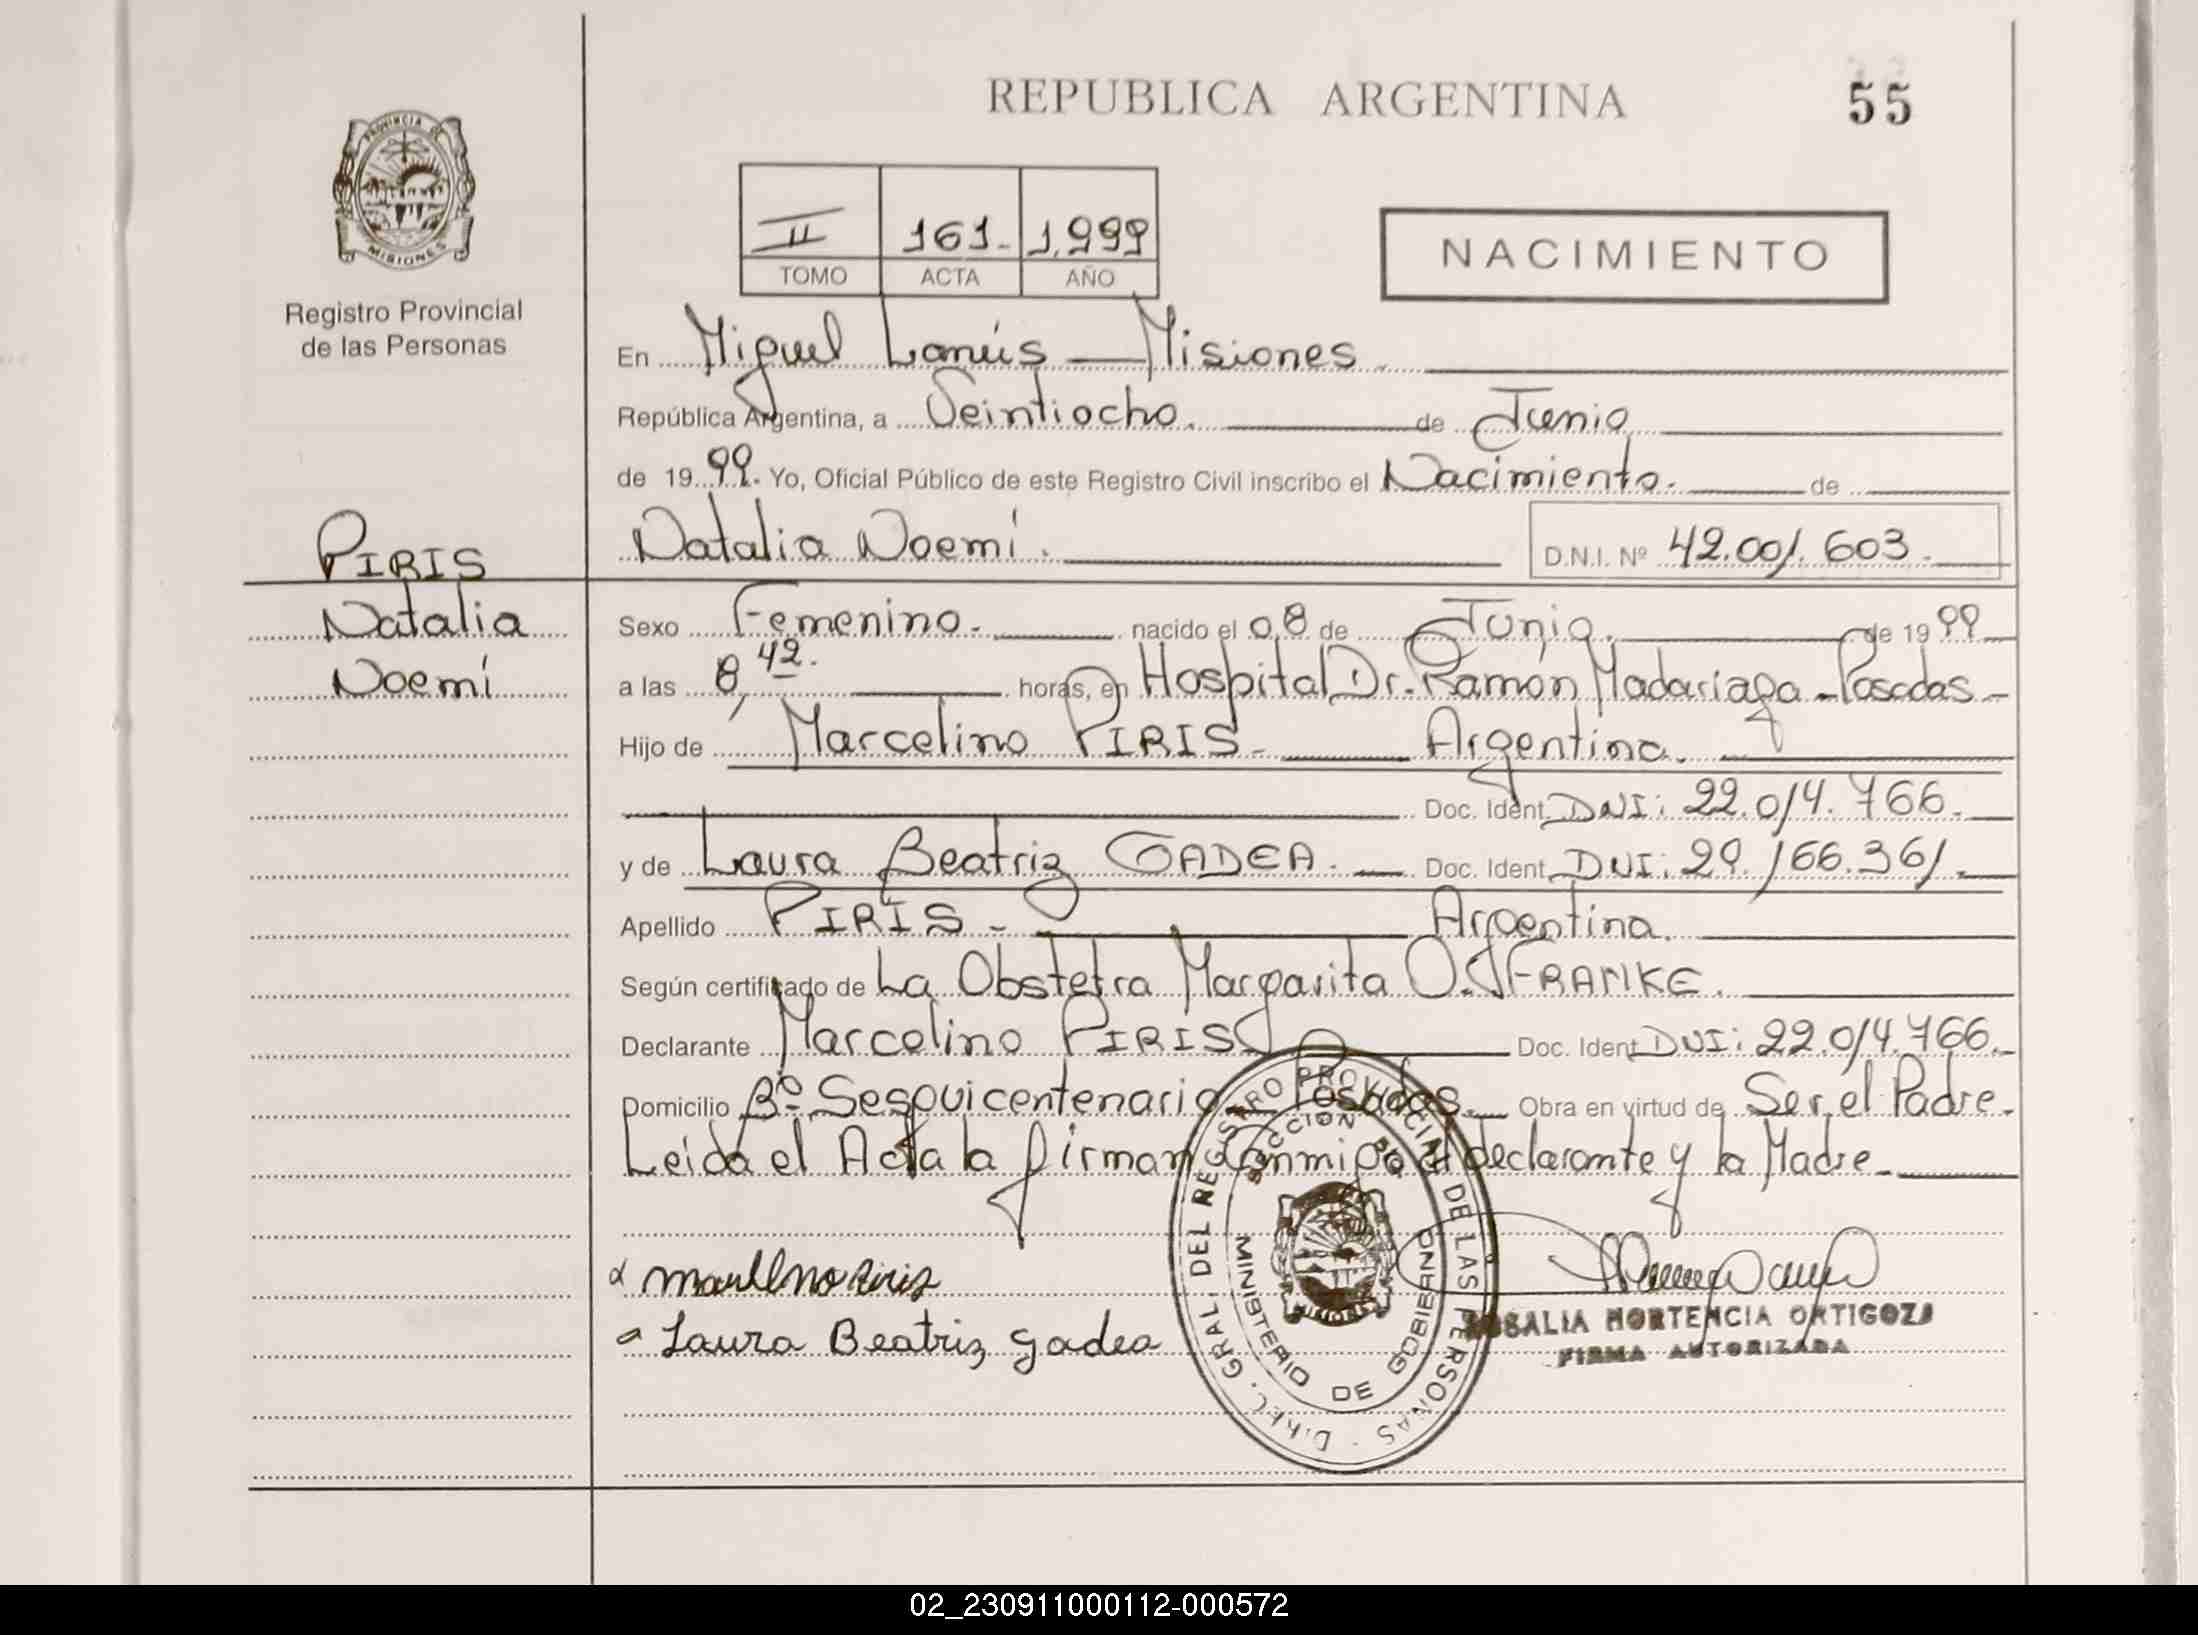 REPUBLICA ARGENTINA
55
PROVINCIA DE
MISIONES
Registro Provincial
de las Personas
II 161.- 1.999
TOMO ACTA AÑO
NACIMIENTO
En Miguel Lanús — Misiones
República Argentina, a Veintiocho. de Junio
de 1999. Yo, Oficial Público de este Registro Civil inscribo el Nacimiento. de
Natalia Noemí. D.N.I. Nº 42.001.603.-
PIRIS
Natalia
Noemí
Sexo Femenino.- nacido el 08 de Junio. de 1999
a las 8,42. horas, en Hospital Dr. Ramón Madariaga - Posadas -
Hijo de Marcelino PIRIS.- Argentino.
Doc. Ident. DNI: 22.014.766.-
y de Laura Beatriz GADEA. - Doc. Ident. DNI: 29.166.361.-
Apellido PIRIS - Argentina.
Según certificado de La Obstetra Margarita O. J FRANKE.
Declarante Marcelino PIRIS Doc. Ident. DNI: 22.014.766.-
Domicilio Bº Sesquicentenario - Posadas. Obra en virtud de Ser el Padre.
Leida el Acta la firman conmigo el declarante y la Madre.
Marcelino Piris
Laura Beatriz Gadea
DIREC. GRAL. DEL REGISTRO PROVINCIAL DE LAS PERSONAS
MINISTERIO DE GOBIERNO
ROSALIA HORTENCIA ORTIGOZA
FIRMA AUTORIZADA
02_230911000112-000572